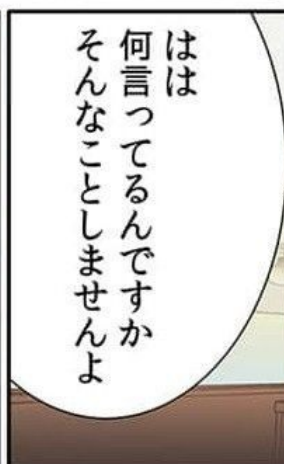 はは
何言ってるんですか
そんなことしませんよ